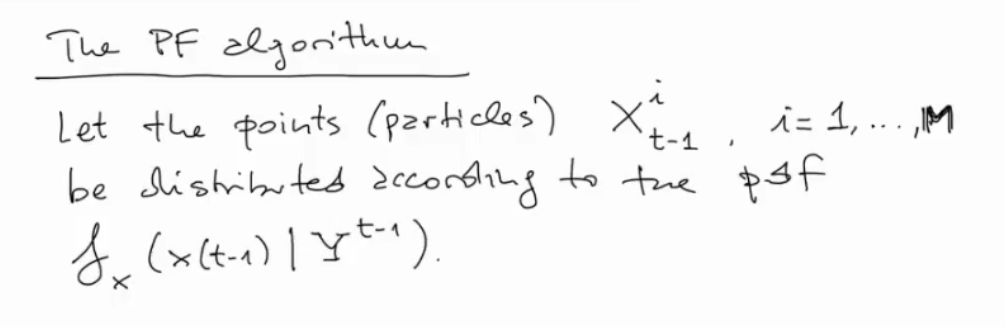 The PF algorithm
Let the points (particles) X^i_{t-1}, i = 1, ..., M
be distributed according to the pdf
f_x (x(t-1) | Y^{t-1}).